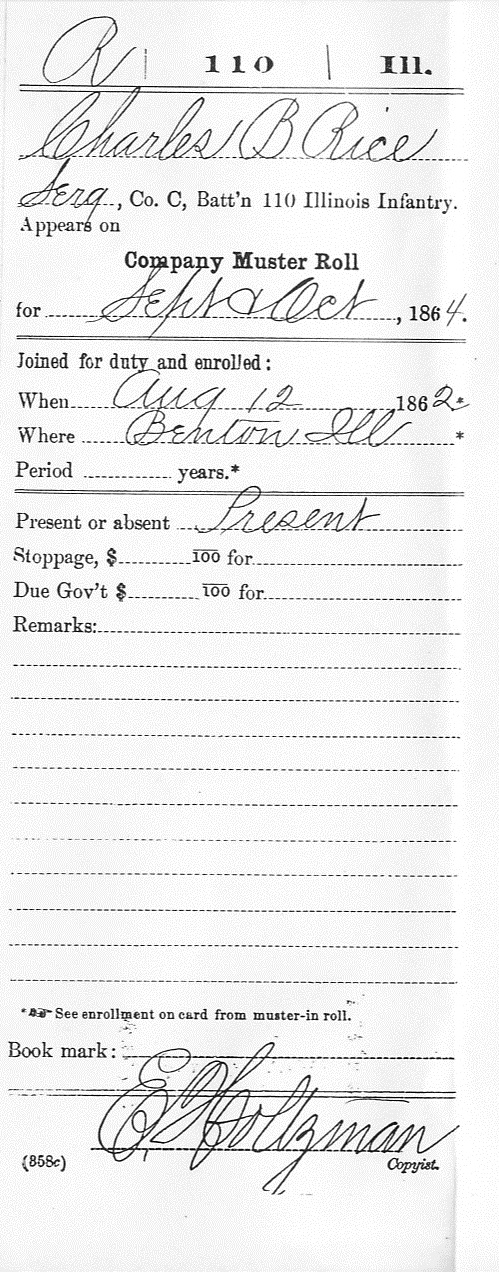 R | 110 | Ill.
Charles B Rice
Serg., Co. C, Batt'n 110 Illinois Infantry.
Appears on
Company Muster Roll
for Sept & Oct, 1864.
Joined for duty and enrolled:
When Aug 12 1862*
Where Benton Ill *
Period years.*
Present or absent Present
Stoppage, $ 100 for
Due Gov't $ 100 for
Remarks:
* See enrollment on card from muster-in roll.
Book mark:
Holtzman
(858c) Copyist.